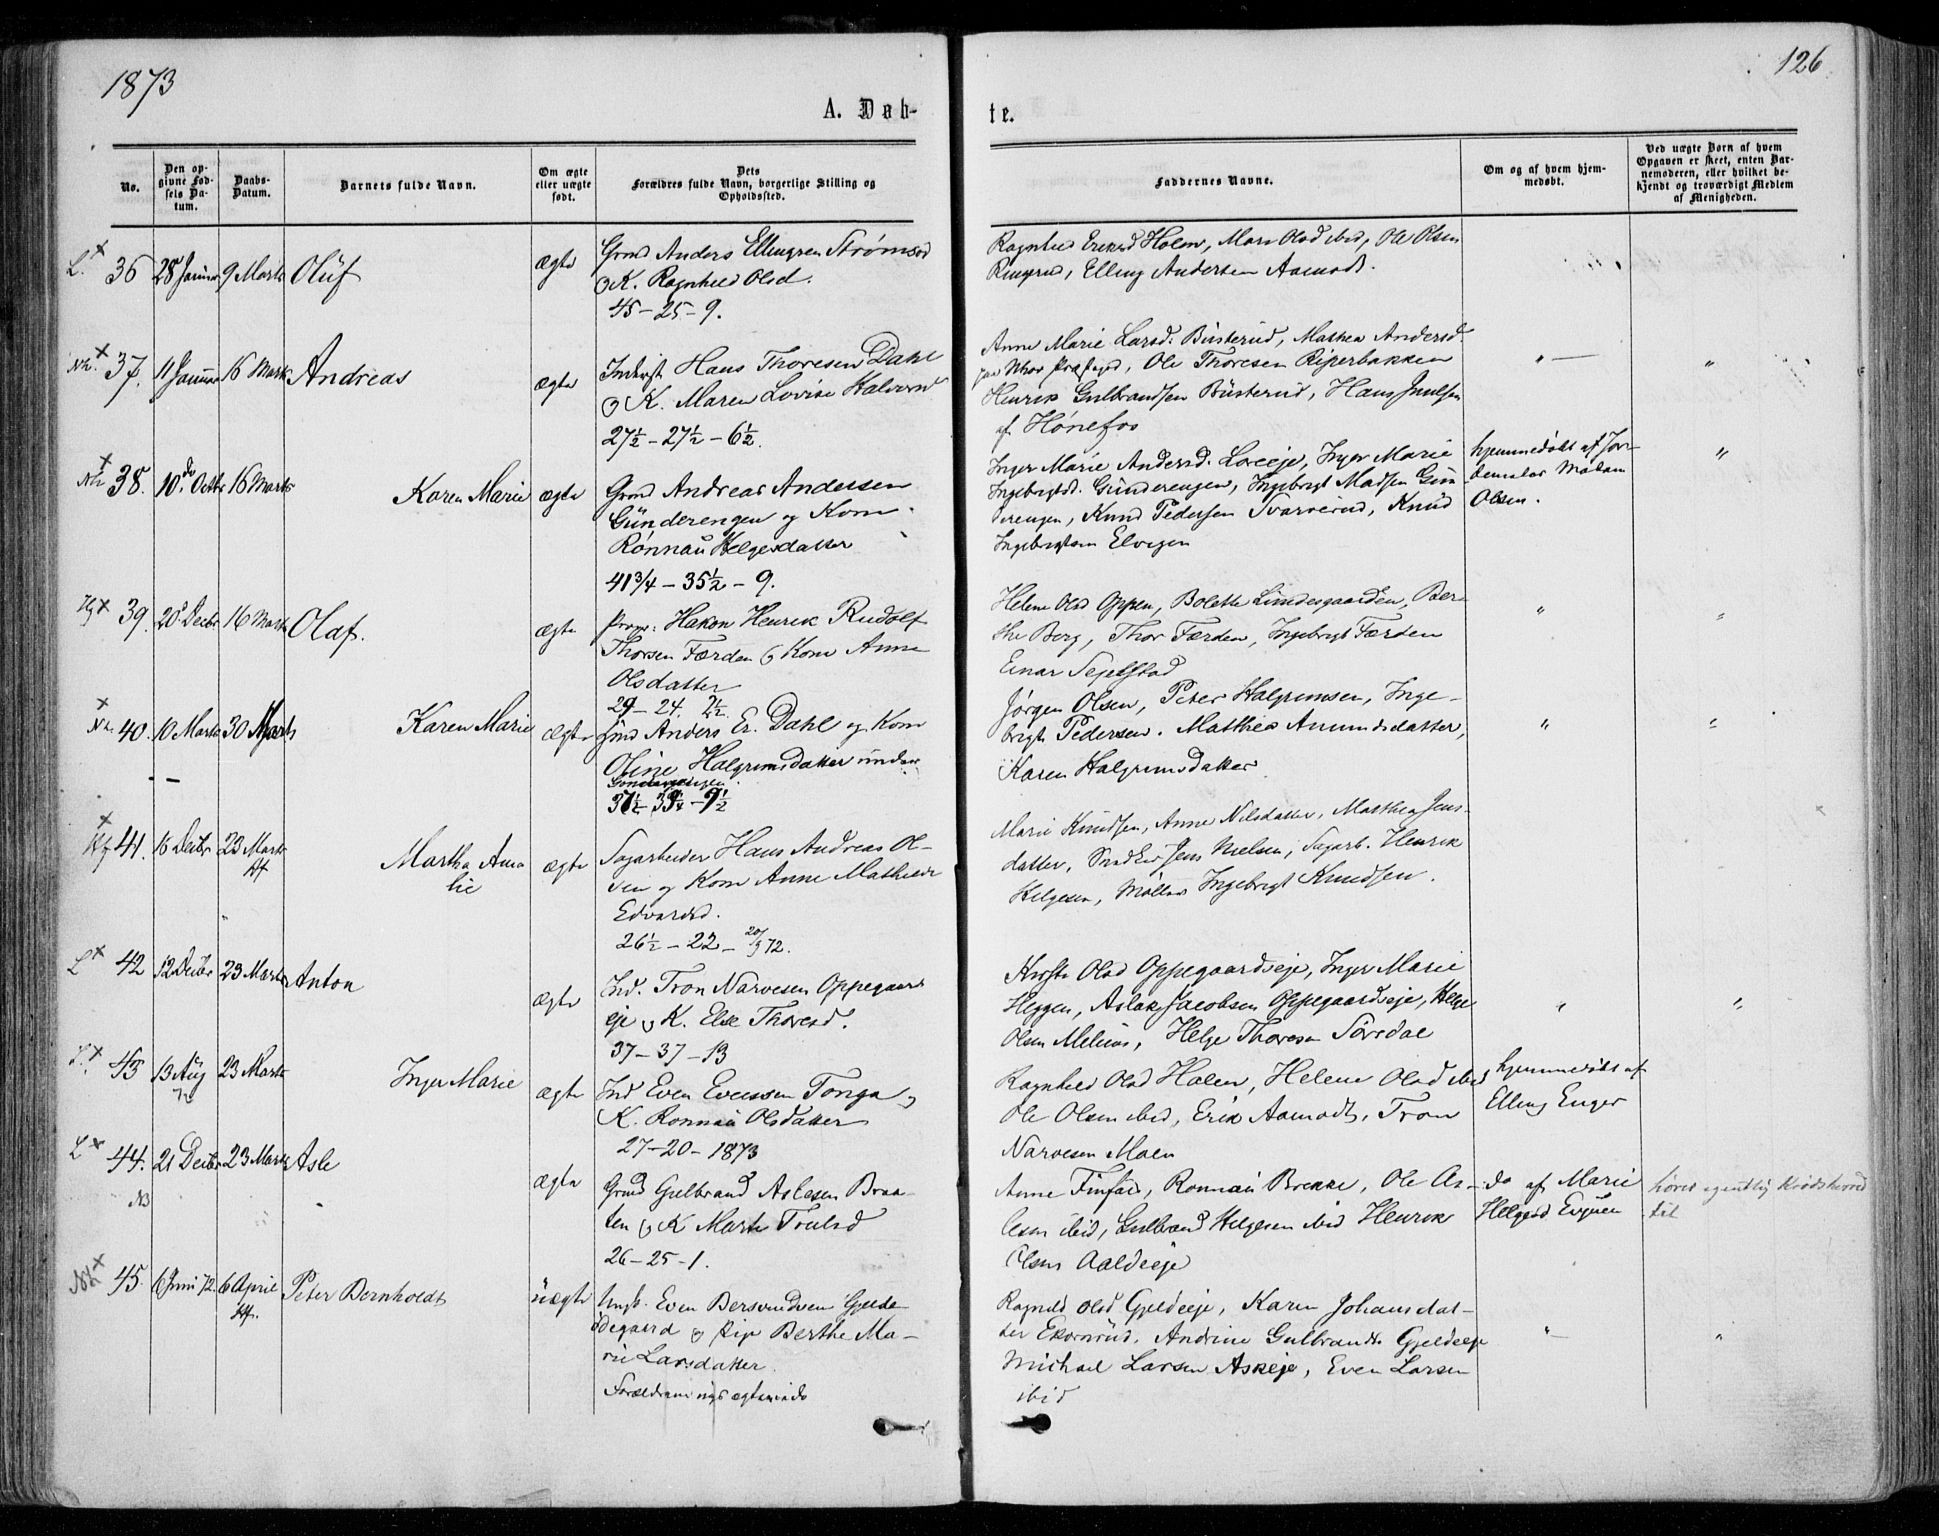 1873
126
A. Døb-
te.
No.
Den op-
givne Fød-
sels Da-
tum.
Daabs-
Datum.
Barnets fulde Navn.
Om ægte
eller uægte
født.
Dets
Forældres fulde Navn, borgerlige Stilling og
Opholdssted.
Faddernes Navne.
Om og af hvem hjem-
medøbt.
Ved uægte Børn af hvem
Opgaven er skeet, enten Bar-
nemoderen, eller hvilket be-
kjendt og troværdigt Medlem
af Menigheden.
L. 36 28 Januar 9 Marts Olüf ægte Grmd Anders Ellingsen Strømsod
og K. Ragnhild Olsd.
45 - 25 - 9.
Ragnhild Eriksd Holen, Mari Olsd ibid, Ole Olsen
Ringerud, Elling Andersen Aamodt.
37. 11 Januar 16 Marts Andreas ægte Inderst Hans Thoresen Dahl
og K. Maren Lovise Halvorsd
27½ - 27½ - 6½.
Anne Marie Larsd. Büsterud, Mathea Andersd.
Ole Thoresen Riperbakken
Henrik Gulbrandsen Büsterud, Hans Juulsen
af Hønefos
38. 10 Octbr 16 Marts Karen Marie ægte Grmd Andreas Andersen
Günderengen og Kone
Rønnaü Helgesdatter
41¾ - 35½ - 9.
Inger Marie Andersd. Loreeje, Inger Marie
Ingebrigtsd. Günderengen, Ingebrigt Madsen Gün
derengen, Knud Pedersen Svarverud, Knüd
Ingebrigtsen Elvigen
hjemmedöbt af Jor-
demoder Madam
Olsen.
39. 20 Decbr 16 Marts Olaf. ægte Propr. Hakon Henrik Rudolf
Thorsen Færden og Kone Anne
Olsdatter
29 - 24. 7½.
Helene Olsd Oppen, Bolette Lundesgaarden, Ber-
the Berg, Thor Færden, Ingebrigt Færden
Einar Segelstad
40. 10 Marts 30 Marts Karen Marie ægte Anders Er. Dahl og Kone
Oline Halgrimsdatter under
Gunderengen.
Jørgen Olsen, Peter Halgrimsen, Inge-
brigt Pedersen. Matthea Amundsdatter,
Karen Halgrimsdatter
41. 16 Decbr 23 Marts Martha Ama
lie ægte Sagarbeider Hans Andreas Ol-
sen og Kone Anne Mathilde
Edvardsd.
26½ - 22 - 20/9 72.
Marie Knudsen, Anne Nilsdatter, Matthea Jens-
datter, Snedker Jens Nielsen, Sagarb. Henrik
Helgesen, Møller Ingebrigt Knudsen.
L 42 12 Decbr 23 Marts Anton ægte Ind. Tron Narvesen Oppegaard
eje og K. Else Thoresd.
37 - 37 - 13
Kirsti Olsd Oppegaardseje, Inger Marie
Heggen, Aslak Jacobsen Oppegaardseje, Helge
Olsen Melaas, Helge Thoresen Sörsdal
43 13 Aug 72 23 Marts Inger Marie ægte Ind Even Evensen Tonga og
K. Ronnau Olsdatter
27 - 20 - 1873
Ragnhild Olsd Holen, Helene Olsd ibid
Ole Olsen ibid, Erik Aamodt, Tron
Narvesen Moen
hjemmedöbt af
Elling Enger
L 44. 21 Decbr 23 Marts Asle ægte Grmd Gulbrand Aslesen Braa-
ten og K Marte Trulsd
26 - 25 - 1.
NB
Anne Finsaas, Ronnau Brekke, Ole As-
lesen ibid, Gulbrand Helgesen ibid Henrik
Olsen Aaldeeje
do af Marie
Helgesd
hører egentlig Krødsherred
til
45. 6 Juni 72. 6 April Peter Bernholdt uægte Ungk. Even Bersvendsen Gjelde
ödegaard og Pige Berthe Ma-
rie Larsdatter.
Ragnild Olsd Gjeldeeje, Karen Johansdat-
ter Ekornrüd, Andrine Gulbrandsd. Gjeldeeje
Michael Larsen Askeje, Even Larsen
ibid